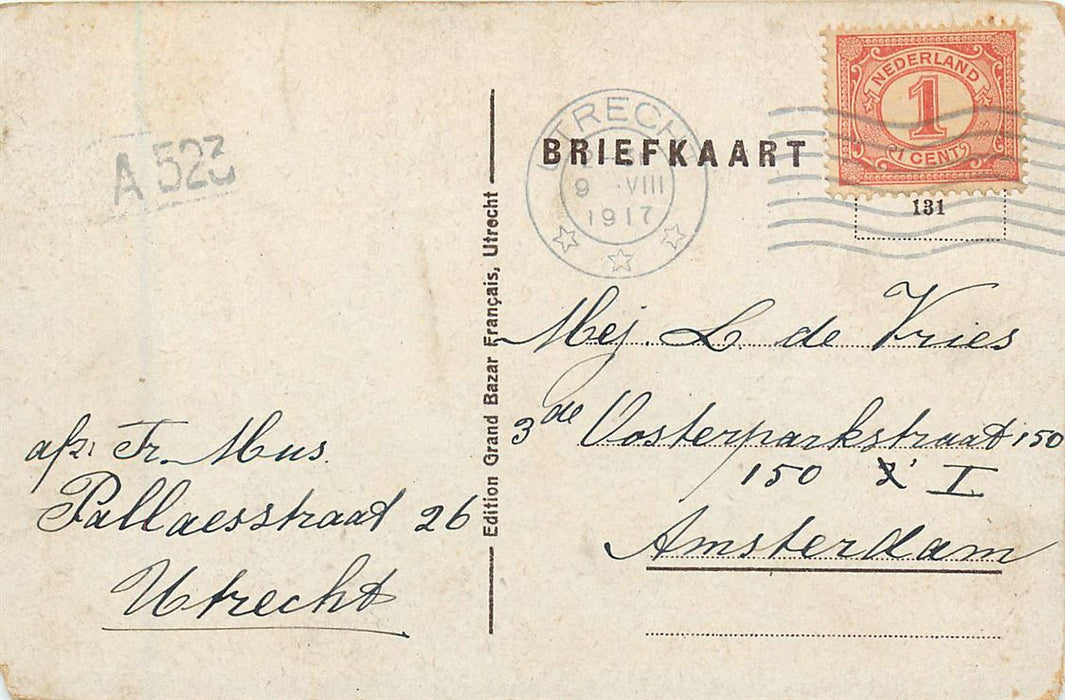 NEDERLAND
1
1 CENT
UTRECHT
9 VIII
1917
BRIEFKAART
131
A 523
Mej. L. de Vries
3de Oosterparkstraat 150
150 I
Amsterdam
afz: Fr. Mus.
Pallaesstraat 26
Utrecht
Edition Grand Bazar Français, Utrecht